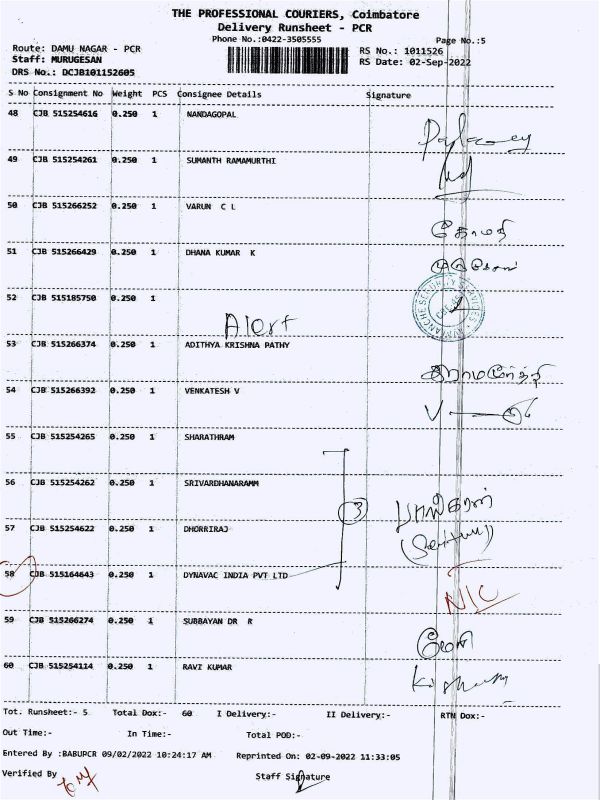 THE PROFESSIONAL COURIERS, Coimbatore
Delivery Runsheet - PCR
Phone No.:0422-3505555
Page No.:5
Route: DAMU NAGAR - PCR
RS No.: 1011526
Staff: MURUGESAN
RS Date: 02-Sep-2022
DRS No.: DCJB101152605
S No Consignment No Weight PCS Consignee Details Signature
48 CJB 515254616 0.250 1 NANDAGOPAL
49 CJB 515254261 0.250 1 SUMANTH RAMAMURTHI
50 CJB 515266252 0.250 1 VARUN C L
கோமதி
51 CJB 515266429 0.250 1 DHANA KUMAR K
52 CJB 515185750 0.250 1
Alert
53 CJB 515266374 0.250 1 ADITHYA KRISHNA PATHY
54 CJB 515266392 0.250 1 VENKATESH V
55 CJB 515254265 1 SHARATHRAM
0.250
56 CJB 515254262 0.250 1 SRIVARDHANARAMM
3
57 CJB 515254622 0.250 1 DHORRIRAJ
58 CJB 515164643 0.250 1 DYNAVAC INDIA PVT LTD
N/C
59 CJB 515266274 0.250 1 SUBBAYAN DR R
60 CJB 515254114 0.250 1 RAVI KUMAR
Tot. Runsheet:- 5 Total Dox:- 60 I Delivery:- II Delivery:- RTN Dox:-
Out Time:- In Time:- Total POD:-
Entered By :BABUPCR 09/02/2022 10:24:17 AM Reprinted On: 02-09-2022 11:33:05
Verified By Staff Signature